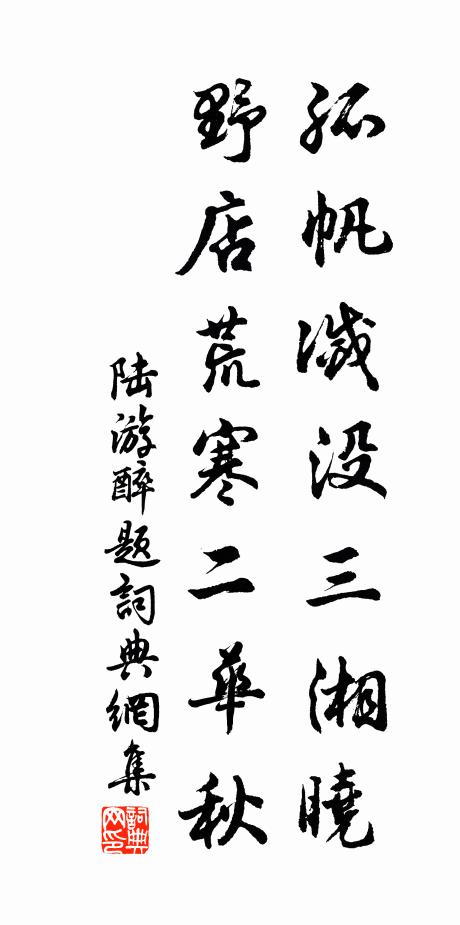 孤帆滅没三湘曉
野店荒寒二華秋
陆游醉题詞典網集
詞典网印